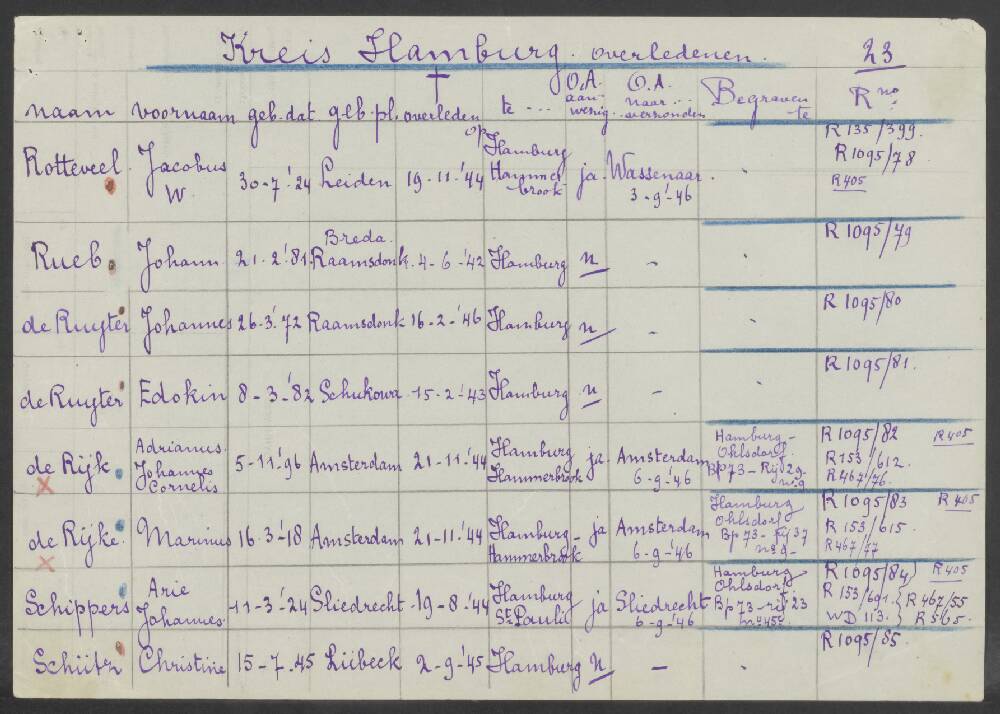 Kreis Hamburg. overledenen. 23
naam voornaam geb.dat geb.pl. overleden op te ... O.A. aan-wezig. O.A. naar... verzonden Begraven te R no.
Rotteveel. Jacobus W. 30-7.'24 Leiden 19-11-'44 Hamburg Hammerbrook ja. Wassenaar. 3-9-'46 R 135/399. R 1095/78 R 405
Rueb. Johann 21-2.'81. Breda. Raamsdonk. 4-6-'42 Hamburg n - R 1095/79
de Ruyter Johannes 26-3.'72 Raamsdonk 16-2-'46 Hamburg n - R 1095/80
de Ruyter Edokin 8-3-'82 Schukowa 15-2-'43 Hamburg n - R 1095/81.
de Rijk. Adrianus. Johannes Cornelis 5-11.'96 Amsterdam 21-11-'44 Hamburg Hammerbrook ja. Amsterdam 6-9-'46 Hamburg-Ohlsdorf. Bp 73-Rij 29. n: 9 R 1095/82 R 405 R 153/612. R 467/76.
de Rijke. Marinus 16.3-'18 Amsterdam 21-11-'44 Hamburg-Hammerbrook ja Amsterdam 6-9-'46 Hamburg Ohlsdorf Bp 73-Rij 37 R 1095/83 R 405 R 153/615. R 467/77
Schippers Arie Johannes. 11-3.'24 Sliedrecht 19-8-'44 Hamburg St. Pauli ja Sliedrecht 6-9-'46 Hamburg Ohlsdorf Bp 73-rij 23 R 1095/84 R 405 R 153/691. R 467/55 WD 113. R 565.
Schütz Christine 15-7.45 Lübeck 2-9-'45 Hamburg n - R 1095/85.